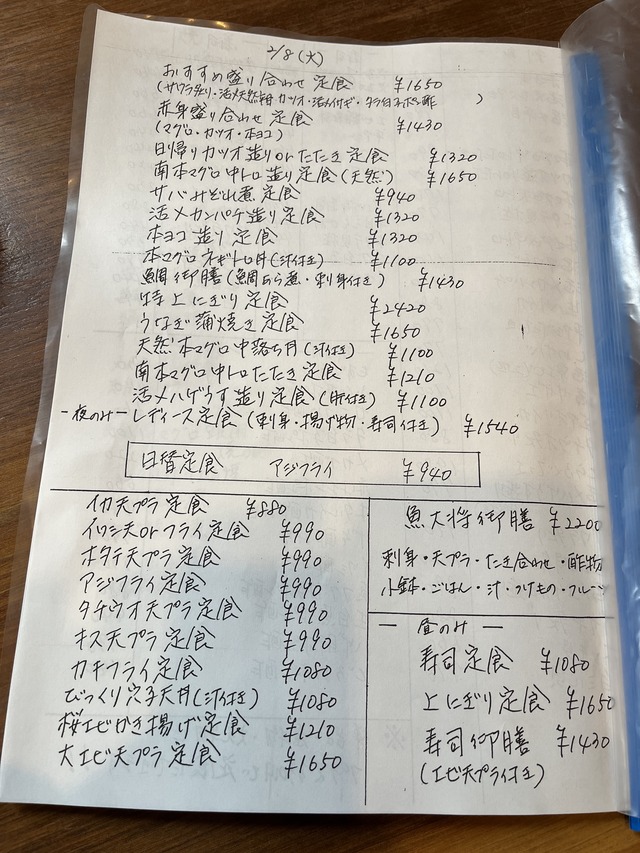 2/8(火)
おすすめ盛り合わせ定食 ¥1650
(サワラ炙り・活〆天然 カツオ・活〆 ・タラ白子ポン酢 )
赤身盛り合わせ定食 ¥1430
(マグロ・カツオ・本ヨコ)
日帰りカツオ造りorたたき定食 ¥1320
南本マグロ中トロ造り定食(天然) ¥1650
サバみぞれ煮定食 ¥940
活〆カンパチ造り定食 ¥1320
本ヨコ造り定食 ¥1320
本マグロネギトロ丼(汁付き) ¥1100
鯛御膳(鯛あら煮・刺身付き) ¥1430
特上にぎり定食 ¥2420
うなぎ蒲焼き定食 ¥1650
天然本マグロ中落ち丼(汁付き) ¥1100
南本マグロ中トロたたき定食 ¥1210
活〆ハゲうす造り定食(肝付き) ¥1100
-夜のみ-レディース定食(刺身・揚げ物・寿司付き) ¥1540
日替定食 アジフライ ¥940
イカ天プラ定食 ¥880
イワシ天orフライ定食 ¥990
ホタテ天プラ定食 ¥990
アジフライ定食 ¥990
タチウオ天プラ定食 ¥990
キス天プラ定食 ¥990
カキフライ定食 ¥1080
びっくり穴子天丼(汁付き) ¥1080
桜エビかき揚げ定食 ¥1210
大エビ天プラ定食 ¥1650
魚大将御膳 ¥2200
刺身・天プラ・たき合わせ・酢物
小鉢・ごはん・汁・つけもの・フルーツ
― 昼のみ ―
寿司定食 ¥1080
上にぎり定食 ¥1650
寿司御膳 ¥1430
(エビ天プラ付き)